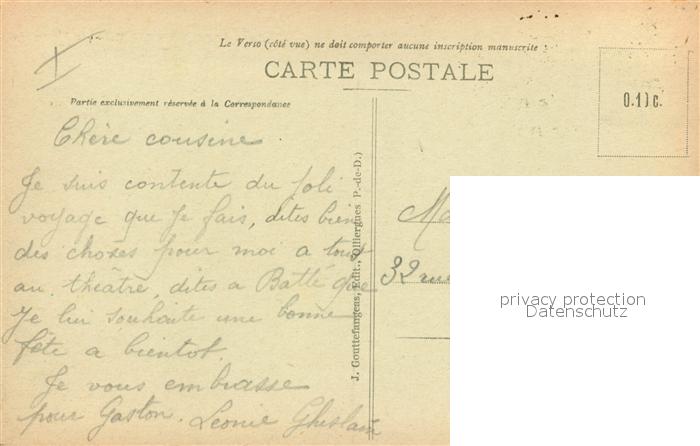 Le Verso (côté vue) ne doit comporter aucune inscription manuscrite
CARTE POSTALE
Partie exclusivement réservée à la Correspondance
0.10 c.
Chère cousine
Je suis contente du joli
voyage que je fais, dites bien
des choses pour moi a tous
au théâtre, dites a Batté que
je lui souhaite une bonne
fête a bientot.
Je vous embrasse
pour Gaston. Leonie Ghislain
J. Gouttefangeas, Edit., Olliergues P.-de-D.)
Ma
32 rue
privacy protection
Datenschutz